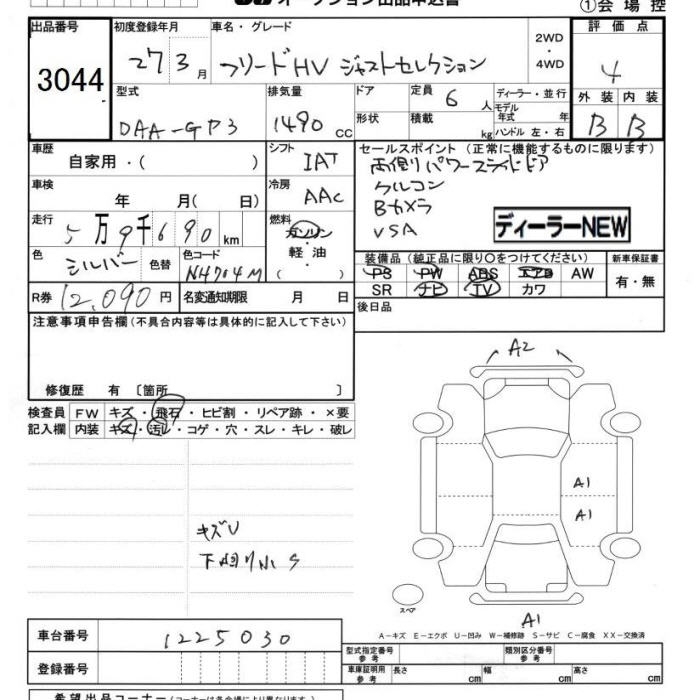 オークション出品申込書
①会場控
出品番号
3044
初度登録年月
27 3月
車名・グレード
フリードHV ジャストセレクション
2WD
・
4WD
評価点
4
外装 内装
B B
型式
DAA-GP3
排気量
1490 cc
ドア
形状
定員 6 人
積載 kg
ディーラー・並行
モデル年式 年
ハンドル 左・右
車歴
自家用・( )
シフト
IAT
車検
年 月( 日)
冷房
AAC
走行
5万9千690km
燃料
ガソリン
軽油
( ・ )
色
シルバー
色替
色コード
NH704M
R券
12,090円
名変通知期限 月 日
セールスポイント (正常に機能するものに限ります)
両側パワースライドドア
クルコン
Bカメラ
VSA
ディーラーNEW
装備品 (純正品に限り○をつけてください)
PS PW ABS エアB AW
SR ナビ TV カワ
新車保証書
有・無
後日品
注意事項申告欄 (不具合内容等は具体的に記入して下さい)
修復歴 有 〔箇所 〕
検査員
記入欄
FW キズ・飛石・ヒビ割・リペア跡・×要
内装 キズ・汚レ・コゲ・穴・スレ・キレ・破レ
キズU
下廻り小S
A2
A1
A1
スペア
A1
A-キズ E-エクボ U-凹み W-補修跡 S-サビ C-腐食 XX-交換済
車台番号
1225030
登録番号
型式指定番号
参考
類別区分番号
参考
車庫証明用
参考
長さ cm 幅 cm 高さ cm
希望出品コーナー (コーナーは各会場により異なります)